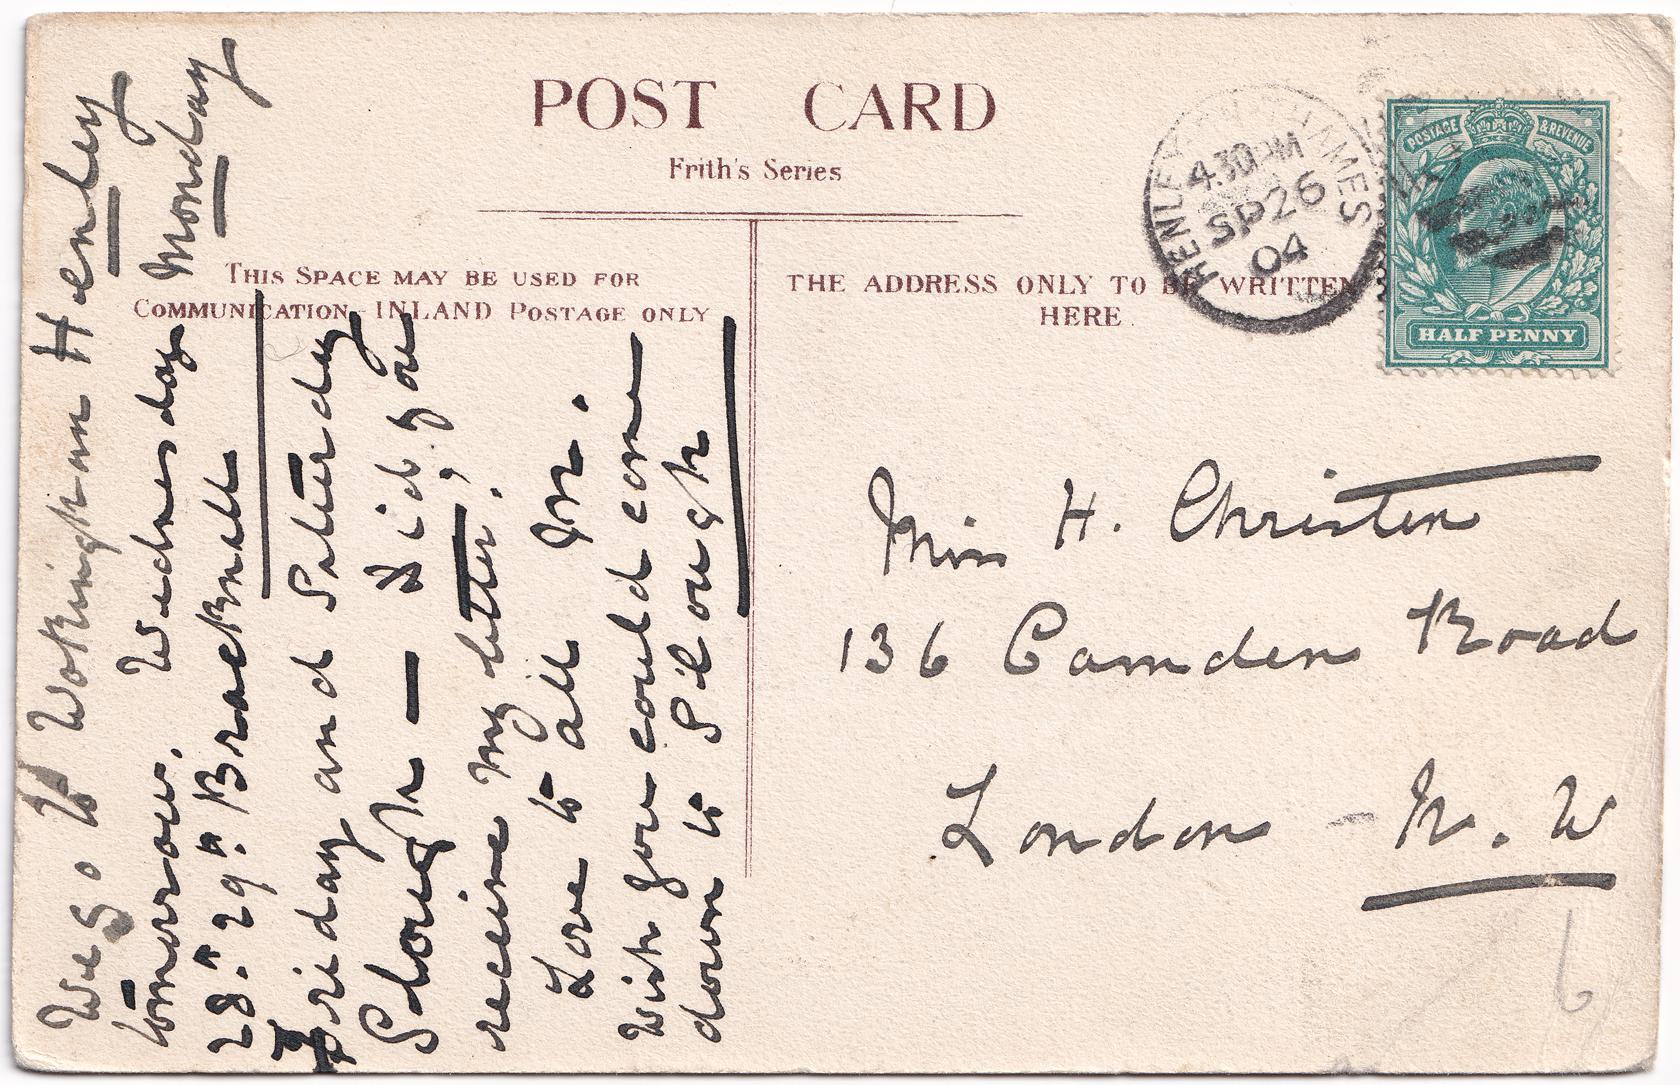 POST CARD
Frith's Series
THIS SPACE MAY BE USED FOR
COMMUNICATION - INLAND POSTAGE ONLY
THE ADDRESS ONLY TO BE WRITTEN
HERE
HENLEY THAMES
4.30PM
SP26
04
POSTAGE & REVENUE
HALF PENNY
Henley
Monday
We go to Wokingham
tomorrow. Wednesday
28th 29th Bracknell
Friday and Saturday
Slough — Did you
receive my letter?
Love to all M.
Wish you could come
down to Slough
Miss H. Christen
136 Camden Road
London - N. W
6